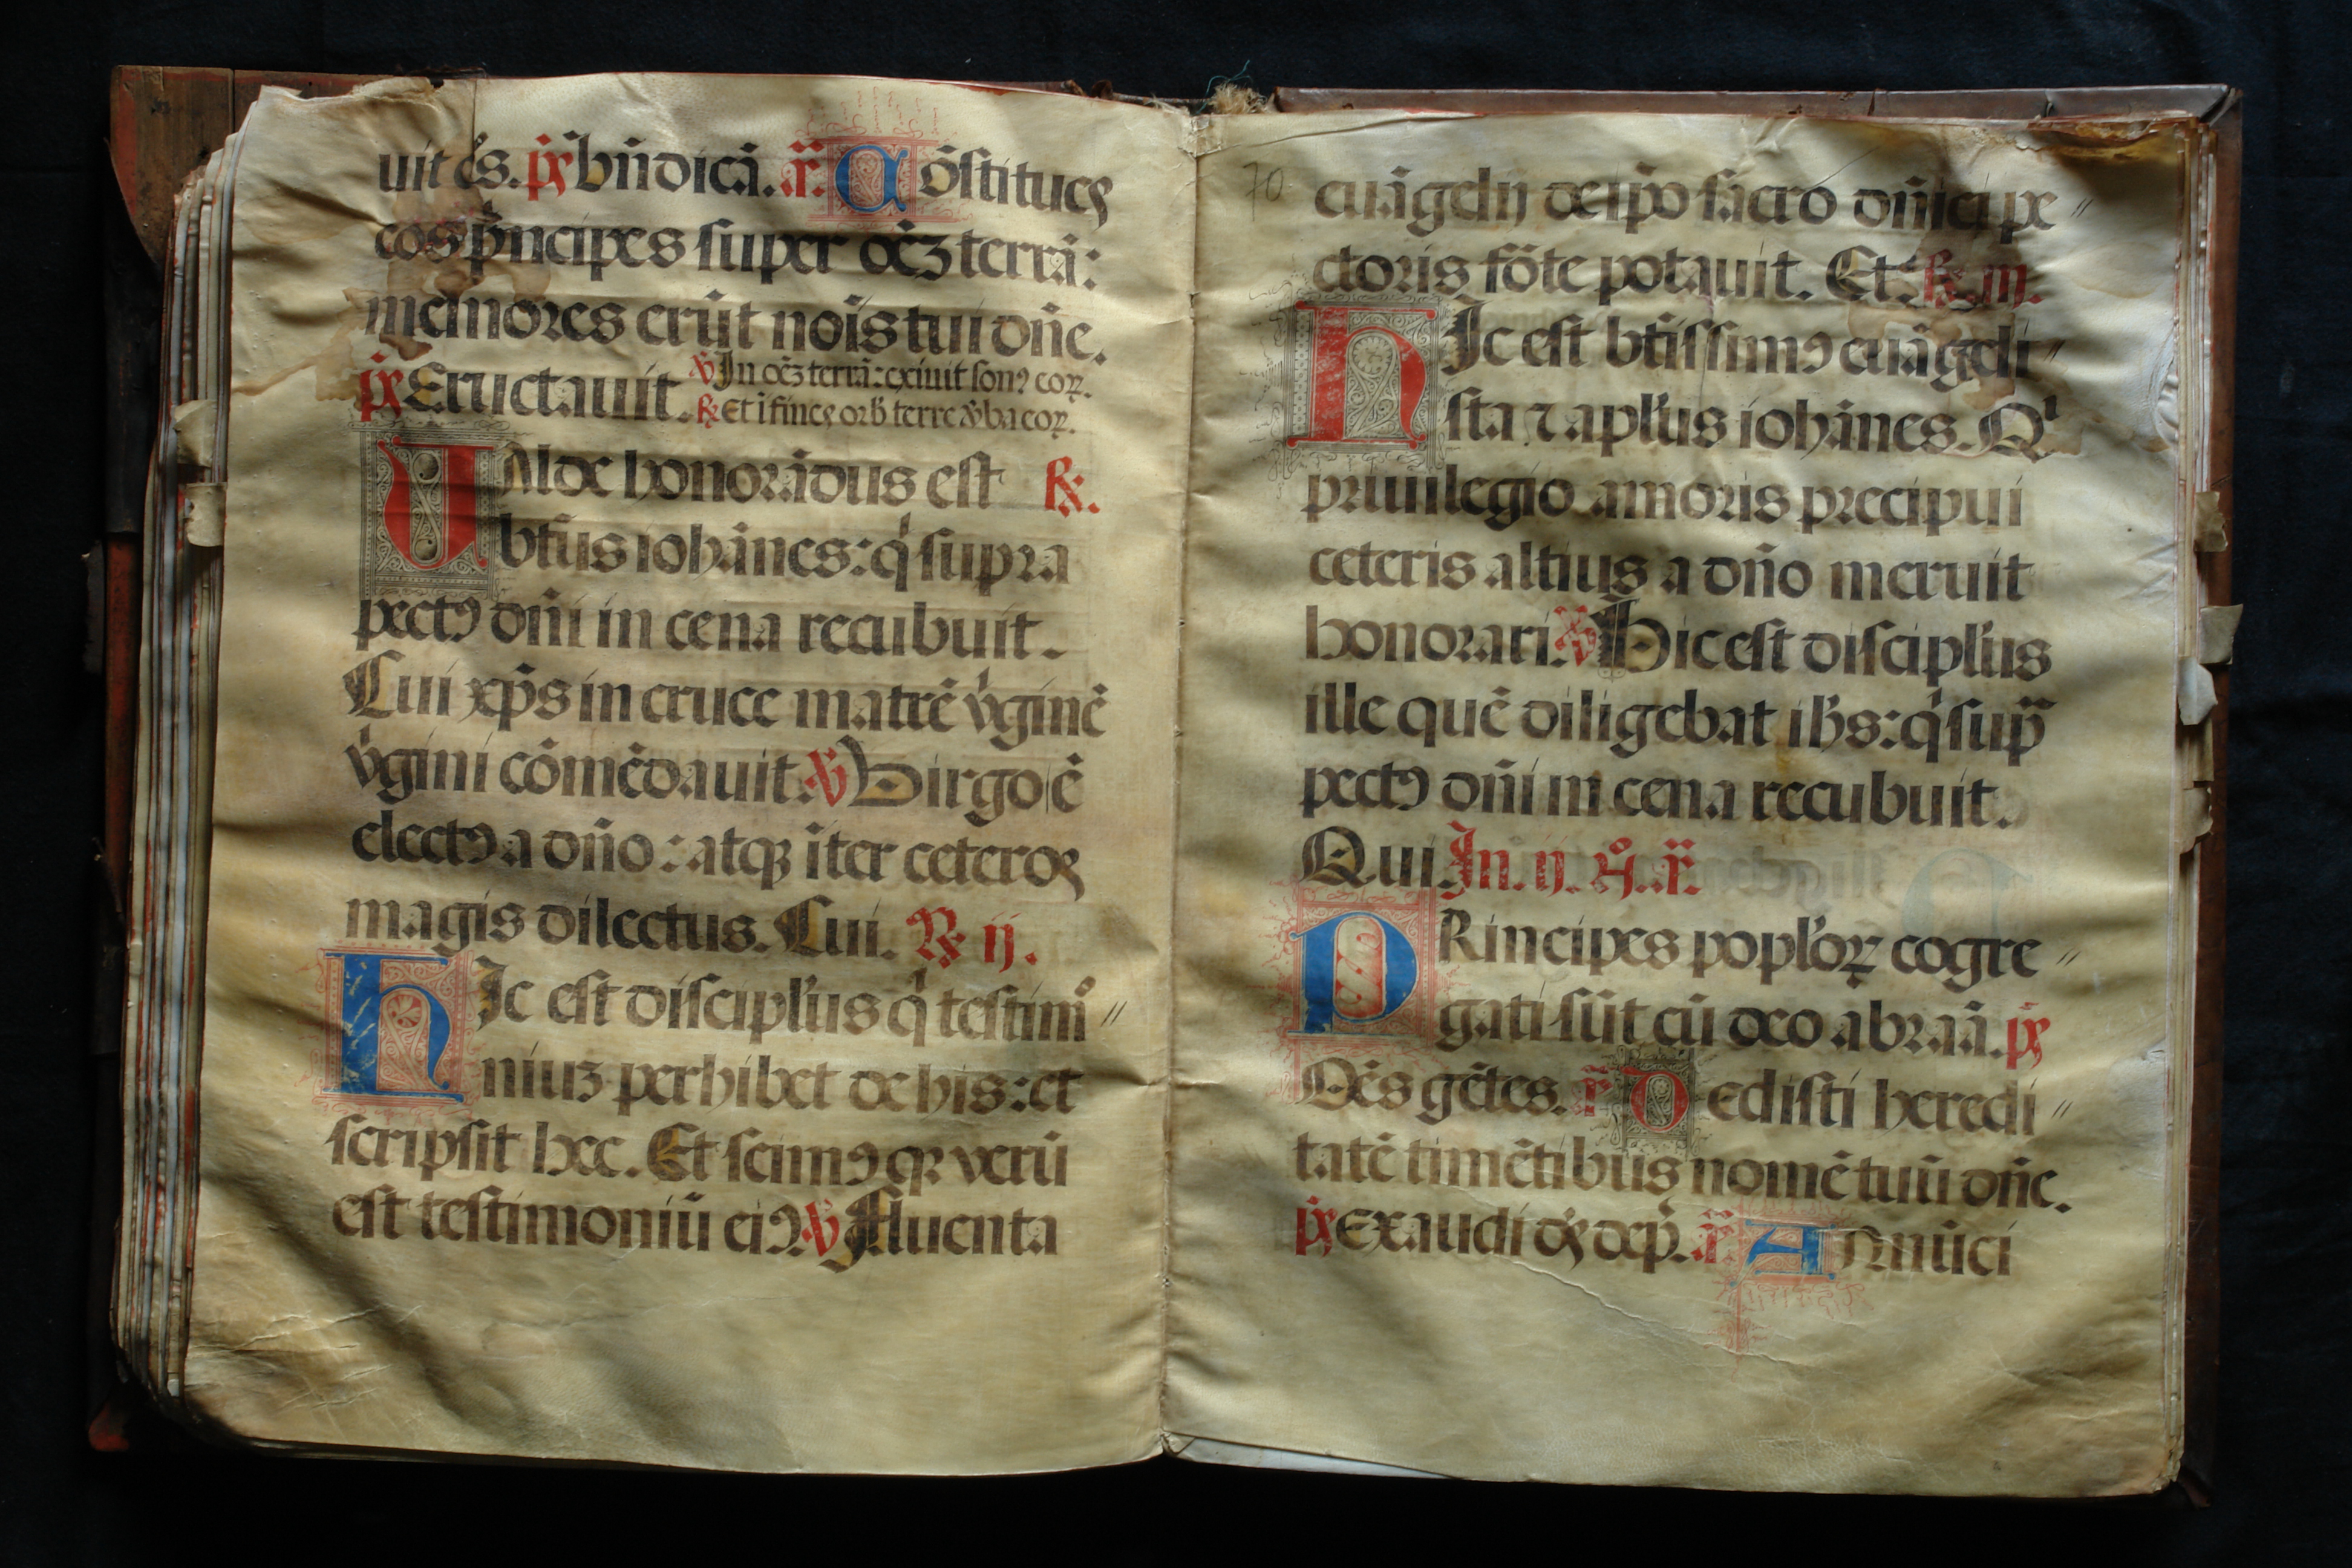 uit eos. ps bn̄dicā. añ. Cōstitues
eos p̄ncipes super oēʒ terrā:
memores erūt nōis tui dn̄e.
ps Eructauit. ℣ In oēʒ terrā: exiuit son9 eoꝝ.
℟ Et ī fines orb̄ terre v̄ba eoꝝ.
UAlde honorādus est ℟.
bt̄us iohānes: q̇ supra
pect9 dn̄i in cena recubuit.
Cui xp̄s in cruce matrē v̇ginē
v̇gini cōmēdauit. ℣ Virgo ē
elect9 a dn̄o: atqꝫ īter ceteros
magis dilectus. Cui. ℟ ij.
HIc est discipl'us q̇ testim°
niuʒ perhibet de his: et
scripsit hec. Et scim9 qꝛ verū
est testimoniū ei9. ℣ Fluenta
70
euāgelij de ip̄o sacro dn̄ici pe
ctoris fōte potauit. Et. ℟ iij.
HIc est bt̄issim9 euāgeli
sta ⁊ apl'us iohānes. Qⁱ
priuilegio amoris precipui
ceteris altius a dn̄o meruit
honorari. ℣ Hic est discipl'us
ille quē diligebat ih̄s: q̇ sup̄
pect9 dn̄i in cena recubuit.
Qui. In. ij. n°. añ.
PRincipes popl'oꝝ cogre
gati sūt cū deo abraā. ps
Oēs gētes. añ Dedisti heredi
tatē timētibus nomē tuū dn̄e.
ps Exaudi ds dep̄. añ Annūci